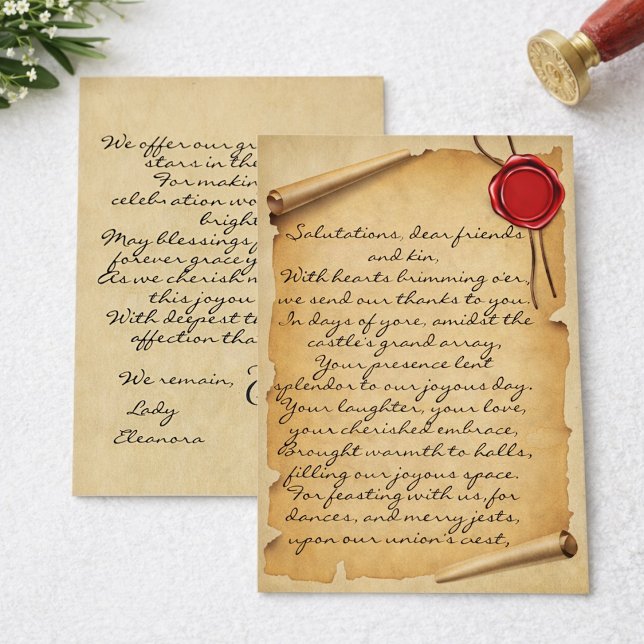 We offer our
stars in the
For
celebration
May blessings
forever grace
As we cherish
this
With deepest
affection
We remain,
Lady
Eleanora
Salutations, dear friends
and kin,
With hearts brimming o'er,
we send our thanks to you.
In days of yore, amidst the
castle's grand array,
Your presence lent
splendor to our joyous day.
Your laughter, your love,
your cherished embrace,
Brought warmth to halls,
filling our joyous space.
For feasting with us, for
dances, and merry jests,
upon our union's crest,